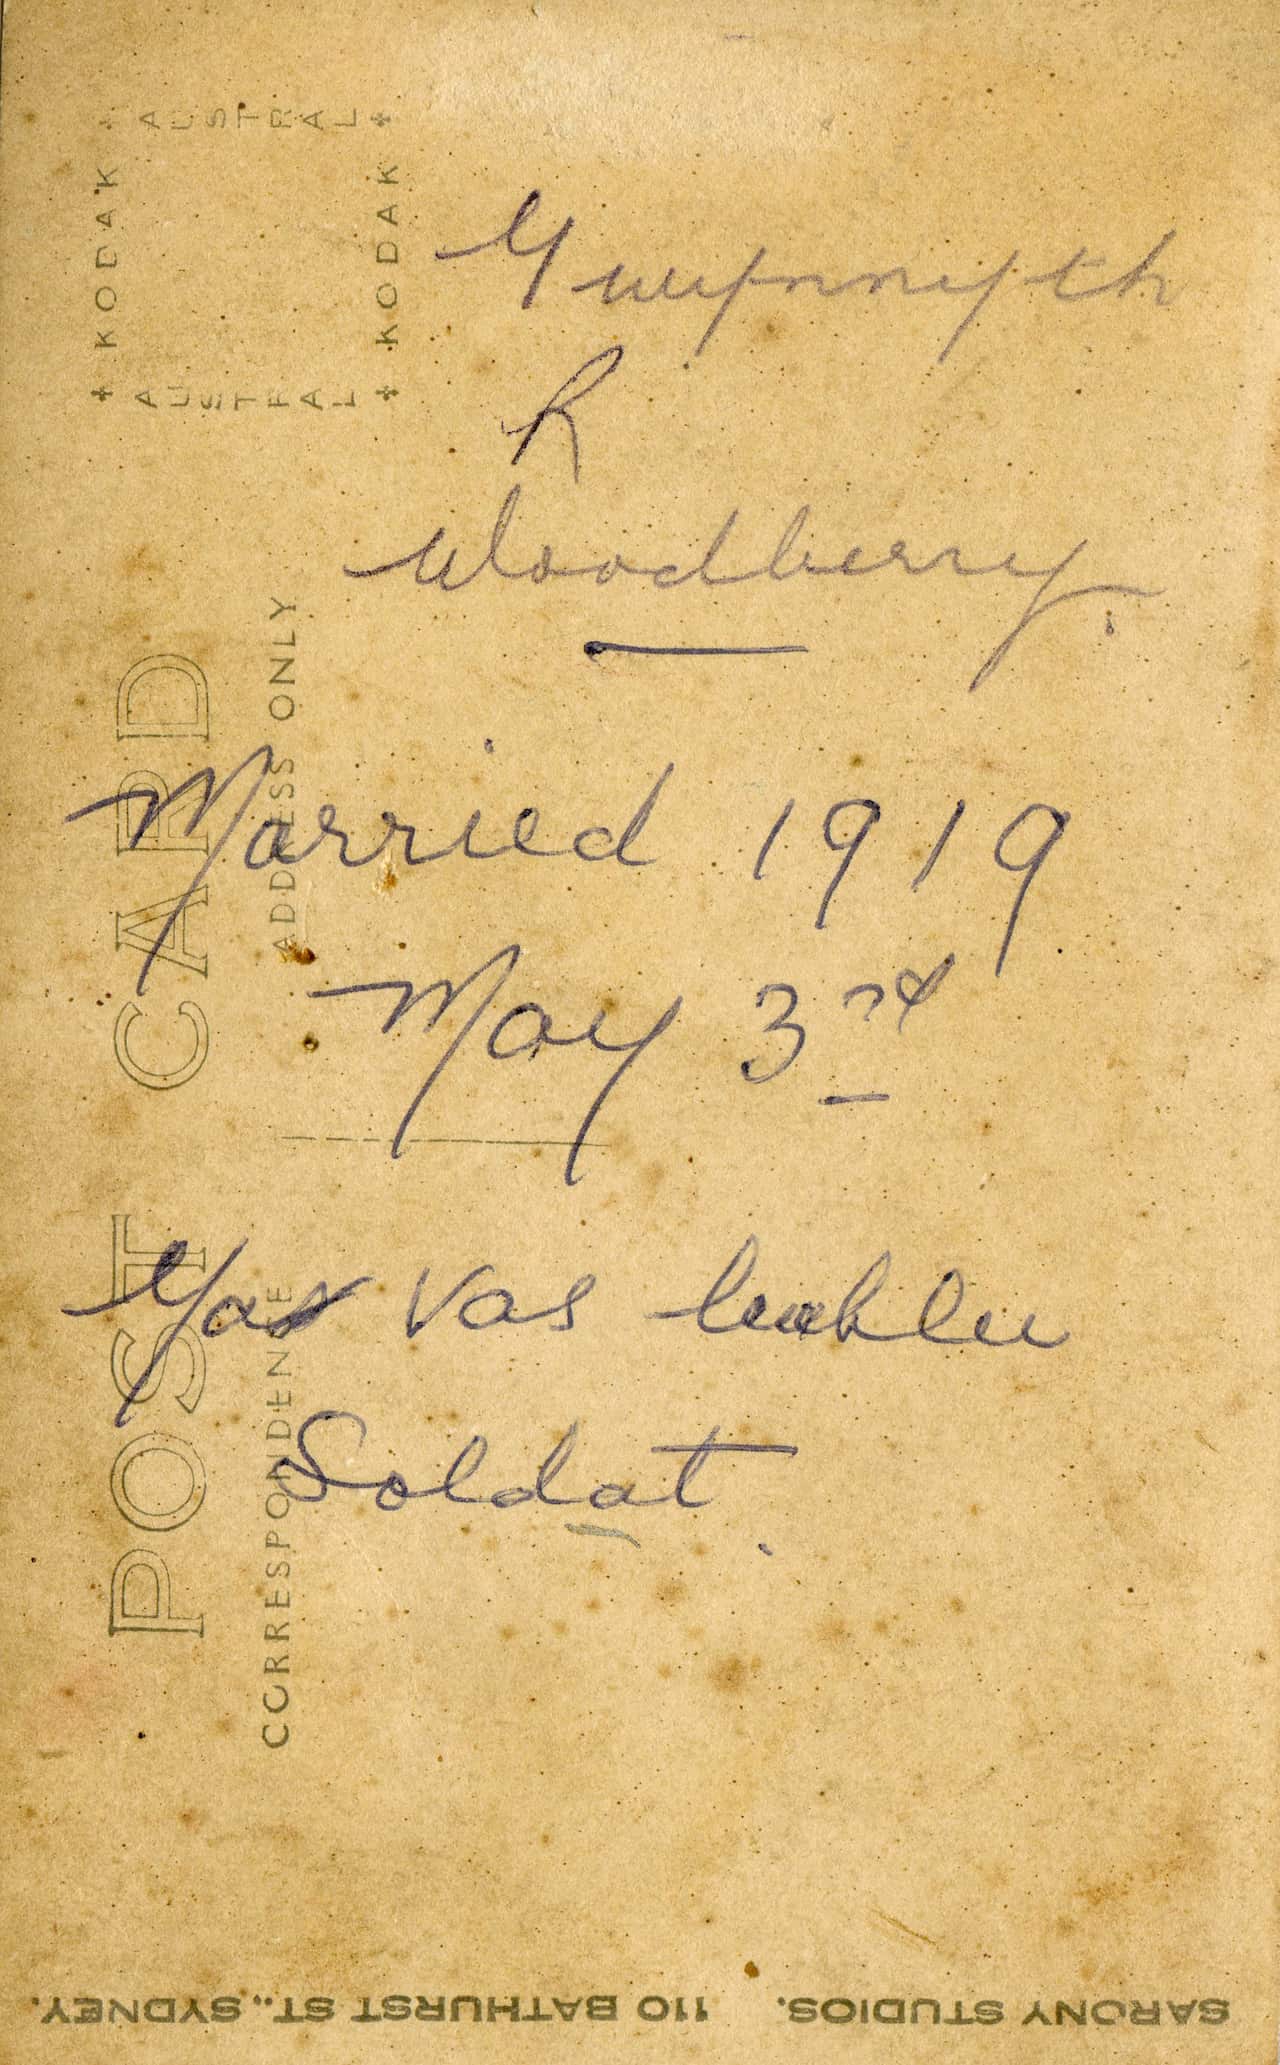 KODAK AUSTRAL KODAK AUSTRAL
POST CARD
CORRESPONDENCE ADDRESS ONLY
Gwynnyth
R
Woodberry.
Married 1919
May 3rd
vas
Soldat.
SARONY STUDIOS. 110 BATHURST ST., SYDNEY.